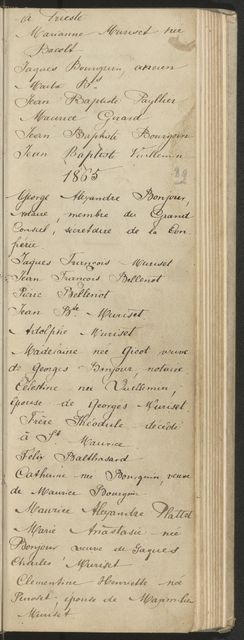 à Trieste
Marianne Muriset née
Bacolt
Jaques Bourquin, ancien
Jean Baptiste Payllier
Maurice Girard
Jean Baptiste Bourquin
Jean Baptiste Vuillemin
1865
89
George Alexandre Bonjour,
notaire, membre du Grand
Conseil, secrétaire de la Con
frérie
Jaques François Muriset
Jean François Bellenot
Pierre Bellenot
Jean Bte Muriset
Adolphe Muriset
Madelaine née Gicot veuve
de Georges Bonjour, notaire
Célestine née Vuillemin,
épouse de Georges Muriset
Frère Théodule décédé
à St Maurice
Félix Balthasard
Catherine née Bourquin, veuve
de Maurice Bourgoin
Maurice Alexandre Plattet
Marie Anastasie née
Bonjour veuve de Jaques
Charles Muriset
Clementine Henriette né
Perroset, épouse de Maximilien
Muriset